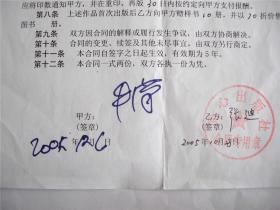 应将印数通知甲方，并在重印、再版30日内按约定向甲方支付报酬。
第八条 上述作品首次出版后乙方向甲方赠样书10册，并以20折价售
图书 册。
第九条 双方因合同的解释或履行发生争议，由双方协商解决。
第十条 合同的变更、续签及其他未尽事宜，由双方另行商定。
第十一条 本合同自签字之日起生效，有效期为5年。
第十二条 本合同一式两份，双方各执一份为凭。
甲方：
（签章）
2005年12月6日
乙方：张
（签章）
2005年10月 日
出版社
专用章